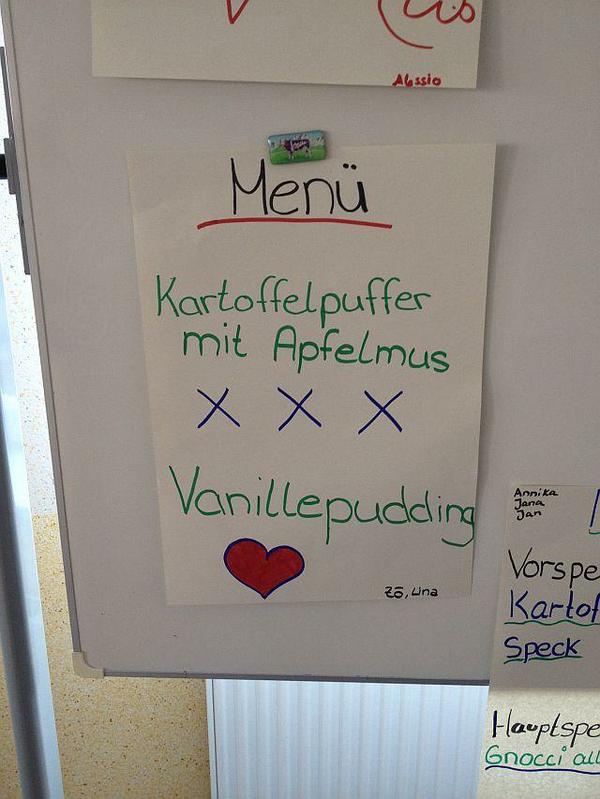 Alessio
Menü
Kartoffelpuffer
mit Apfelmus
X X X
Vanillepudding
Zō, Lina
Annika
Jana
Jan
Vorspe
Kartof
Speck
Hauptspe
Gnocci all